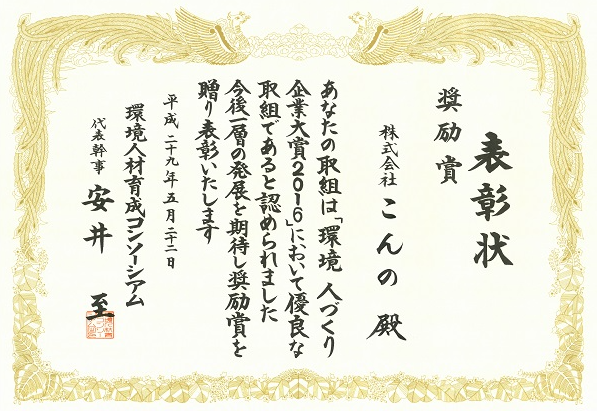 表彰状
奨励賞
株式会社 こんの 殿
あなたの取組は「環境 人づくり
企業大賞2016」において優良な
取組であると認められました
今後一層の発展を期待し奨励賞を
贈り表彰いたします
平成二十九年五月二十二日
環境人材育成コンソーシアム
代表幹事 安井 至